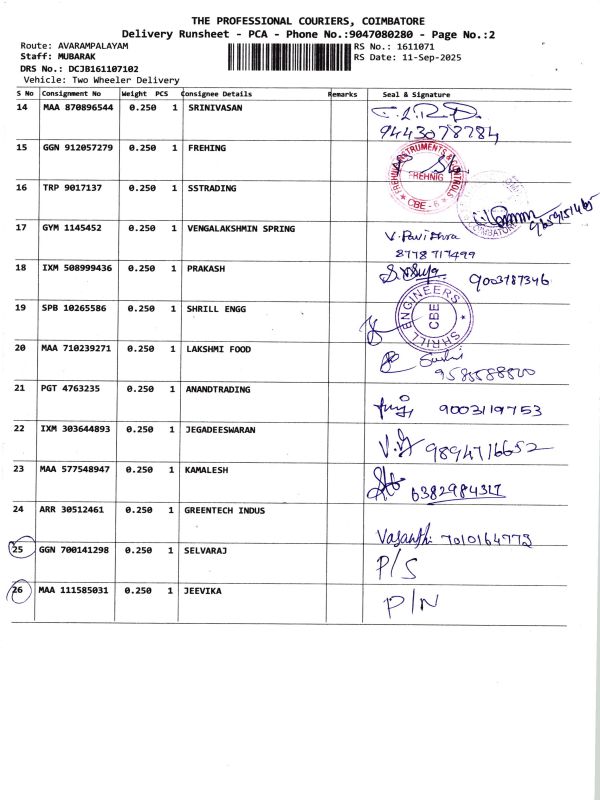 THE PROFESSIONAL COURIERS, COIMBATORE
Delivery Runsheet - PCA - Phone No.:9047080280 - Page No.:2
Route: AVARAMPALAYAM RS No.: 1611071
Staff: MUBARAK RS Date: 11-Sep-2025
DRS No.: DCJB161107102
Vehicle: Two Wheeler Delivery
S No Consignment No Weight PCS Consignee Details Remarks Seal & Signature
14 MAA 870896544 0.250 1 SRINIVASAN
9443078784
15 GGN 912057279 0.250 1 FREHING
FREHNIG INSTRUMENTS & CONTROLS
FREHNIG
CBE - 6
16 TRP 9017137 0.250 1 SSTRADING
COIMBATORE
9659151465
17 GYM 1145452 0.250 1 VENGALAKSHMIN SPRING V. Pavithra
8778717499
18 IXM 508999436 0.250 1 PRAKASH 9003787346
19 SPB 10265586 0.250 1 SHRILL ENGG
SHRILL ENGINEERS
CBE
20 MAA 710239271 0.250 1 LAKSHMI FOOD
9585588820
21 PGT 4763235 0.250 1 ANANDTRADING
9003119753
22 IXM 303644893 0.250 1 JEGADEESWARAN
9894716652
23 MAA 577548947 0.250 1 KAMALESH
6382984317
24 ARR 30512461 0.250 1 GREENTECH INDUS
Vasanthi 7010164773
25 GGN 700141298 0.250 1 SELVARAJ P/S
26 MAA 111585031 0.250 1 JEEVIKA P/N